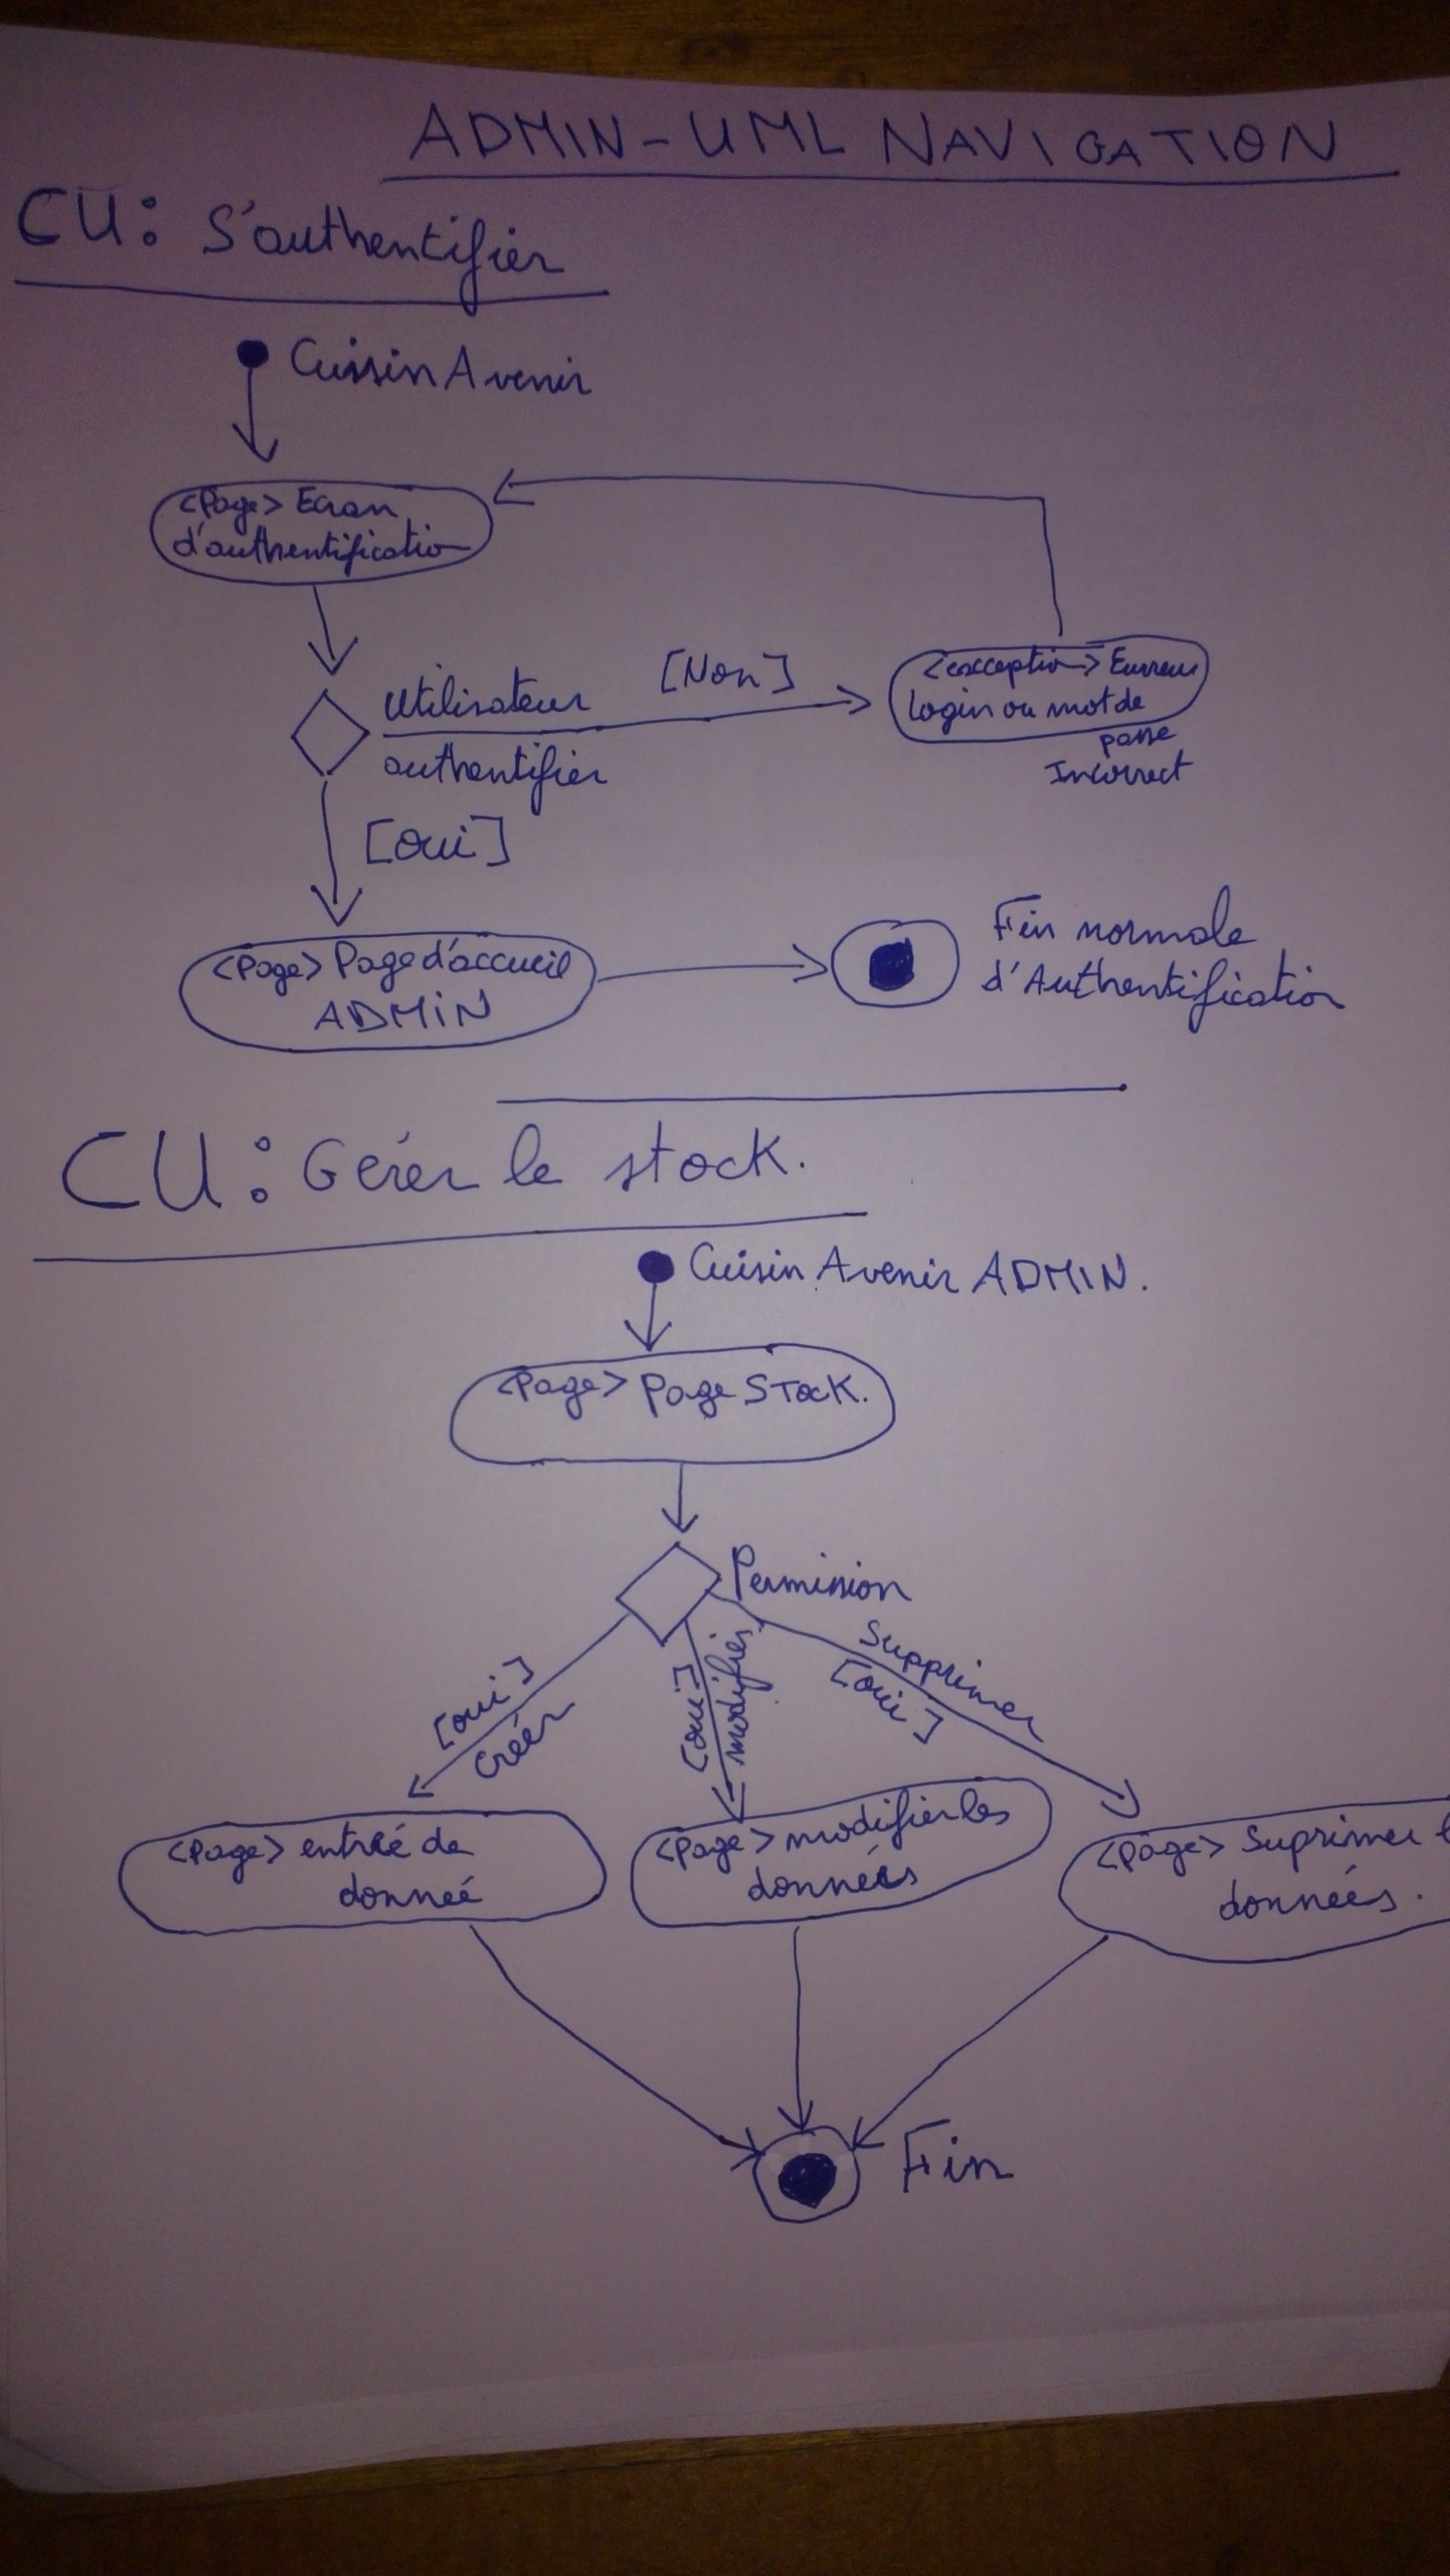 ADMIN-UML NAVIGATION
CU: S'authentifier
CuisinAvenir
<Page> Ecran
d'authentification
Utilisateur
authentifier
[Non]
<exception> Erreur
login ou mot de
passe
Incorrect
[oui]
<Page> Page d'accueil
ADMIN
Fin normale
d'Authentification
CU: Gérer le stock.
CuisinAvenir ADMIN.
<Page> page STOCK.
Permission
[oui]
Créer
[oui]
modifier
Supprimer
[oui]
<Page> entrée de
donneé
<Page> modifier les
données
<page> Suprimer
données.
Fin